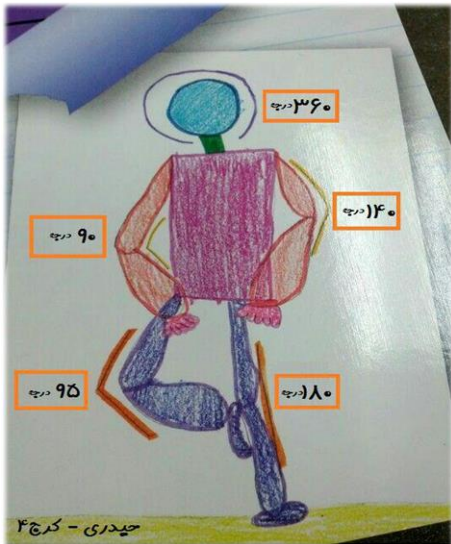 ۳۶۰ درجه
۱۴۰ درجه
۹۰ درجه
۹۵ درجه
۱۸۰ درجه
حیدری - کرج ۴